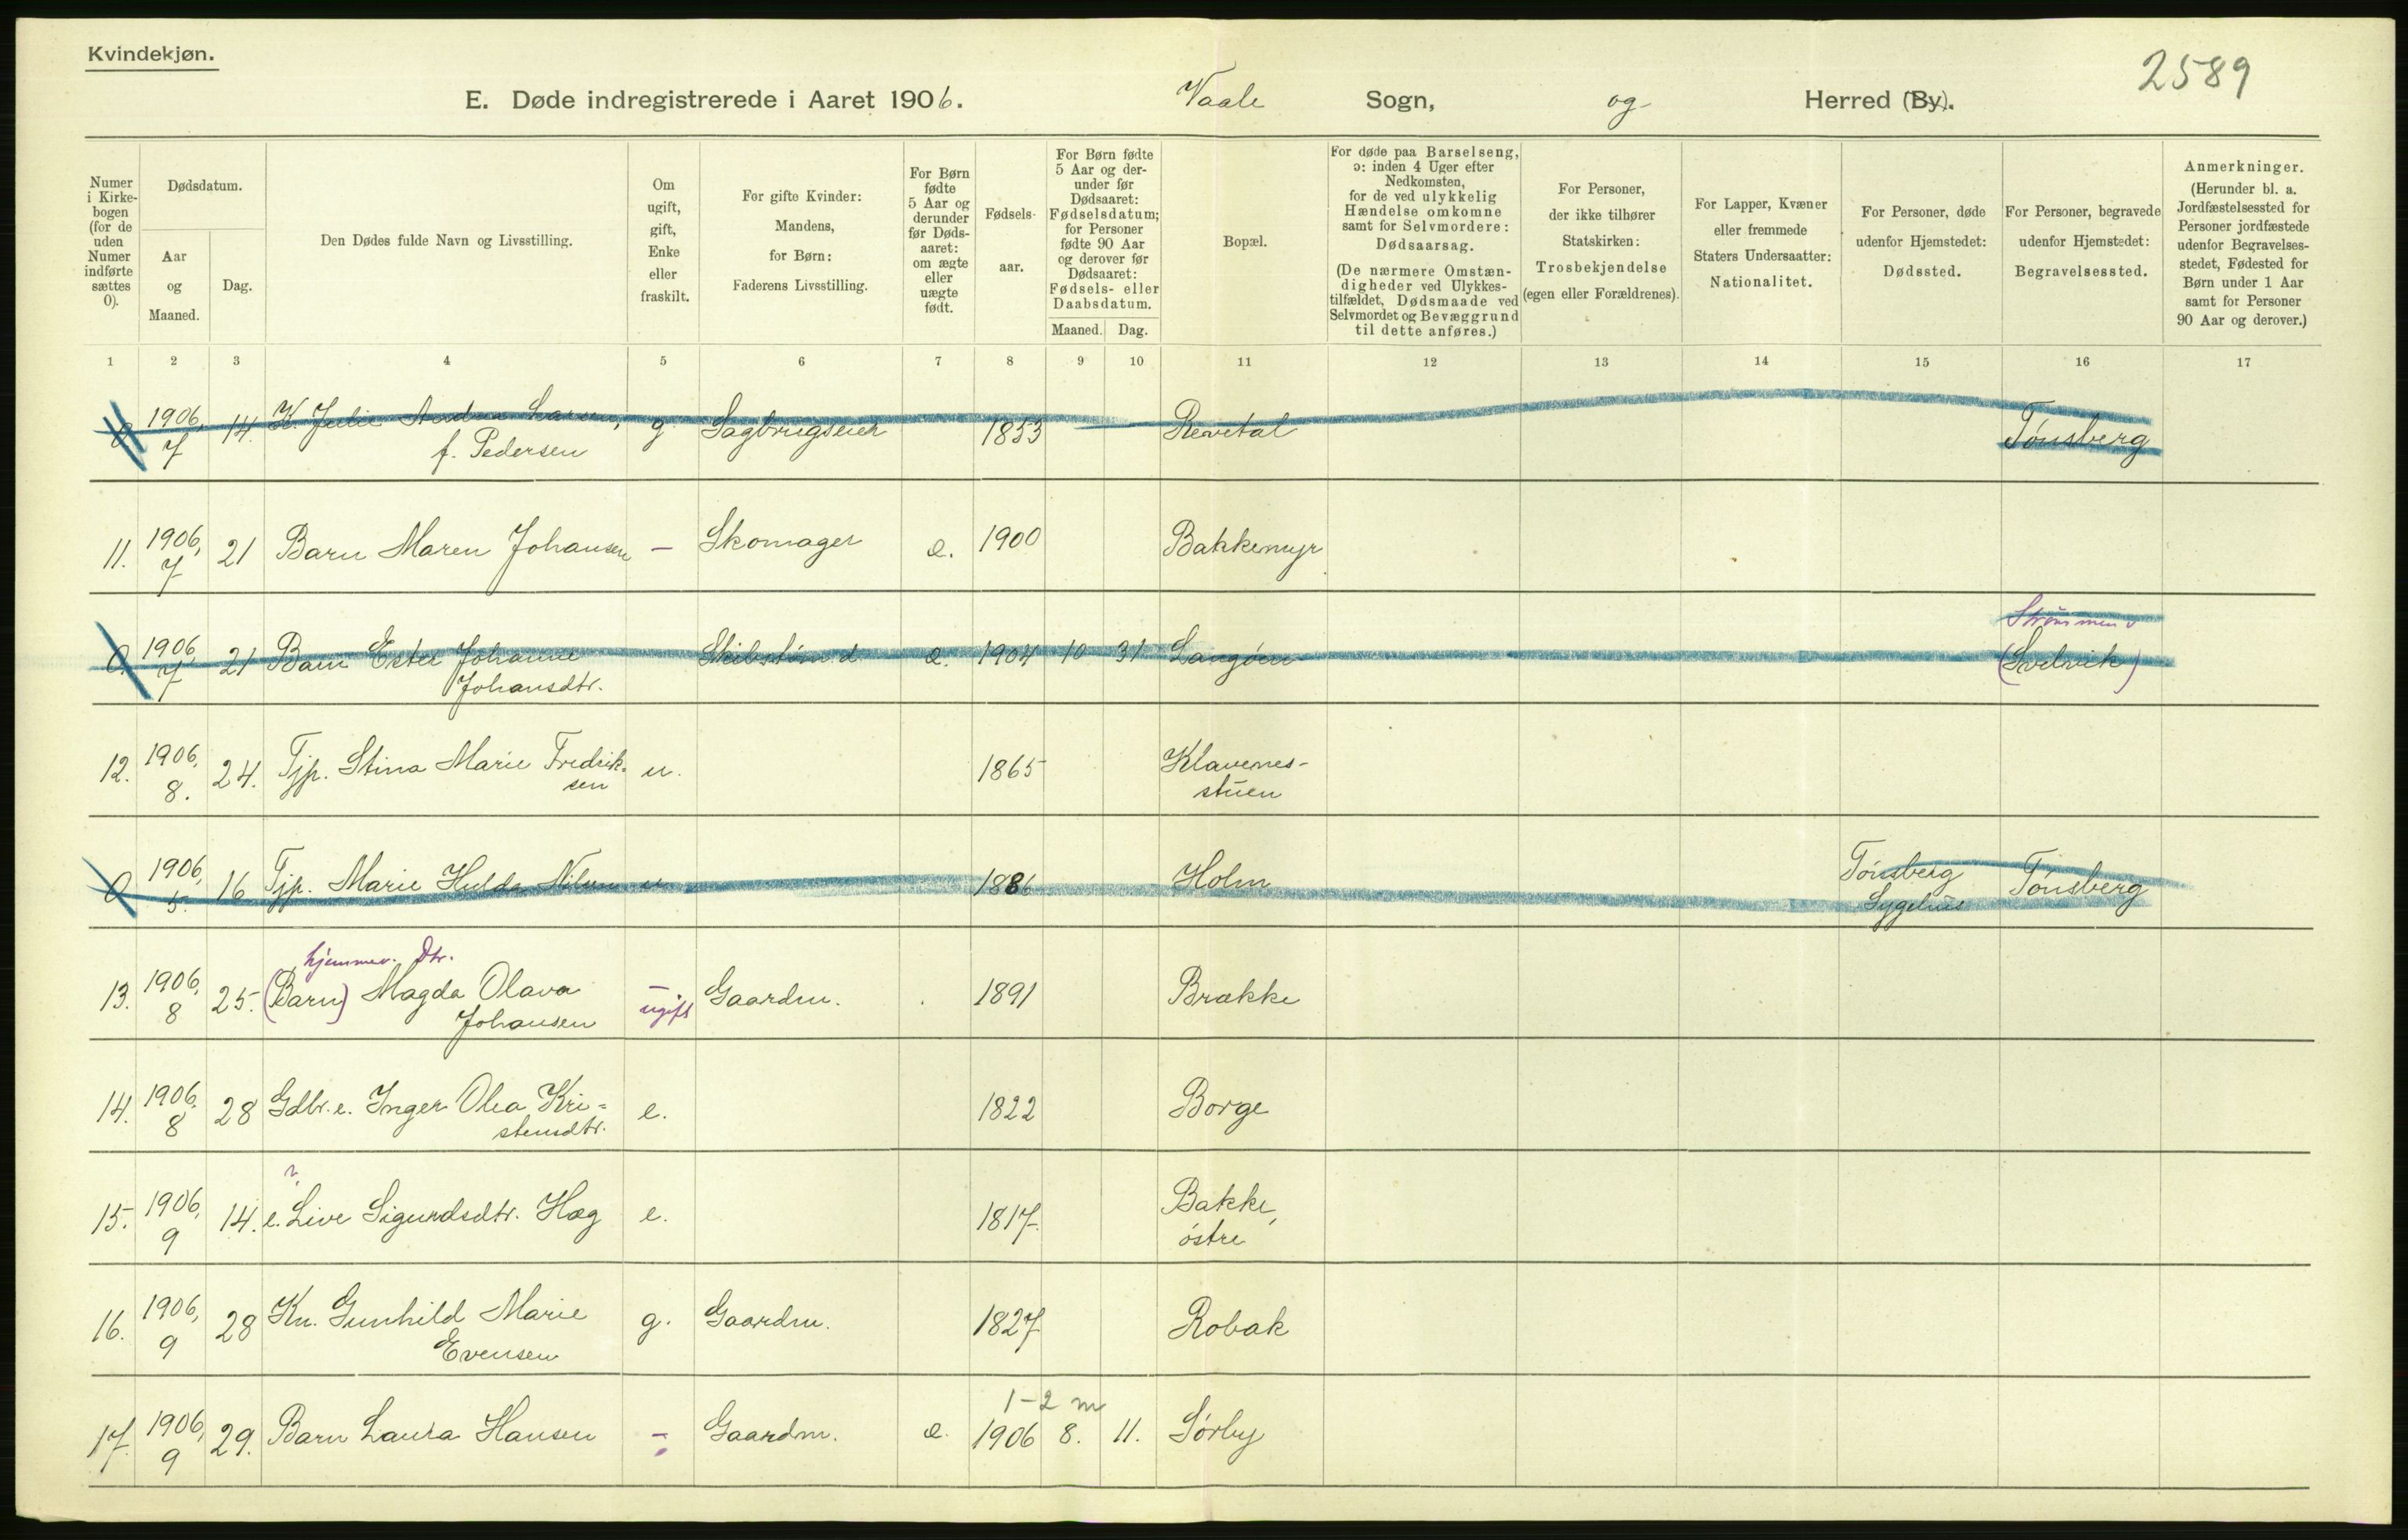 Kvindekjøn.
2589
E. Døde indregistrerede i Aaret 1906. Vaale Sogn, og Herred (By).
Numer i Kirkebogen (for de uden Numer indførte sættes 0).
Dødsdatum.
Aar og Maaned.
Dag.
Den Dødes fulde Navn og Livsstilling.
Om ugift, gift, Enke eller fraskilt.
For gifte Kvinder: Mandens, for Børn: Faderens Livsstilling.
For Børn fødte 5 Aar og derunder før Dødsaaret: om ægte eller uægte født.
Fødselsaar.
For Børn fødte 5 Aar og derunder før Dødsaaret: Fødselsdatum; for Personer fødte 90 Aar og derover før Dødsaaret: Fødsels- eller Daabsdatum.
Maaned. Dag.
Bopæl.
For døde paa Barselseng, ɔ: inden 4 Uger efter Nedkomsten, for de ved ulykkelig Hændelse omkomne samt for Selvmordere: Dødsaarsag.
(De nærmere Omstændigheder ved Ulykkestilfældet, Dødsmaade ved Selvmordet og Bevæggrund til dette anføres.)
For Personer, der ikke tilhører Statskirken: Trosbekjendelse (egen eller Forældrenes).
For Lapper, Kvæner eller fremmede Staters Undersaatter: Nationalitet.
For Personer, døde udenfor Hjemstedet: Dødssted.
For Personer, begravede udenfor Hjemstedet: Begravelsessted.
Anmerkninger.
(Herunder bl. a. Jordfæstelsessted for Personer jordfæstede udenfor Begravelsesstedet, Fødested for Børn under 1 Aar samt for Personer 90 Aar og derover.)
1 2 3 4 5 6 7 8 9 10 11 12 13 14 15 16 17
0 1906, 7 14. K. Julie Andrea Larsen, g. Sagbrugseier 1853 Revetal Tønsberg
f. Pedersen
11. 1906, 7 21 Barn Maren Johansen – Skomager e. 1900 Bakkemyr
Strømmen
0. 1906, 7 21 Barn Ester Johanne Skibstømd. e. 1904 10 31 Langøen (Svelvik)
Johansdtr.
12. 1906, 8. 24. Tjp. Stina Marie Fredrik- u. 1865 Klavenes-
sen stuen
0 1906, 5. 16 Tjp. Marie Hulda Nilsen u 1886 Holm Tønsberg Tønsberg
Sygehus
hjemmev. Dtr.
13. 1906, 8 25. (Barn) Magda Olava – Gaardm. 1891 Brække
Johansen ugift
14. 1906, 8 28 Gdbr. e. Inger Olea Kri= e. 1822 Borge
stensdtr.
?
15. 1906, 9 14. e. Live Sigurdsdtr. Hæg e. 1817. Bakke,
østre
16. 1906, 9 28 Kn. Gunhild Marie g. Gaardm. 1827 Robak
Evensen
1-2 m
17. 1906, 9 29. Barn Laura Hansen – Gaardm. e. 1906 8. 11. Sørby